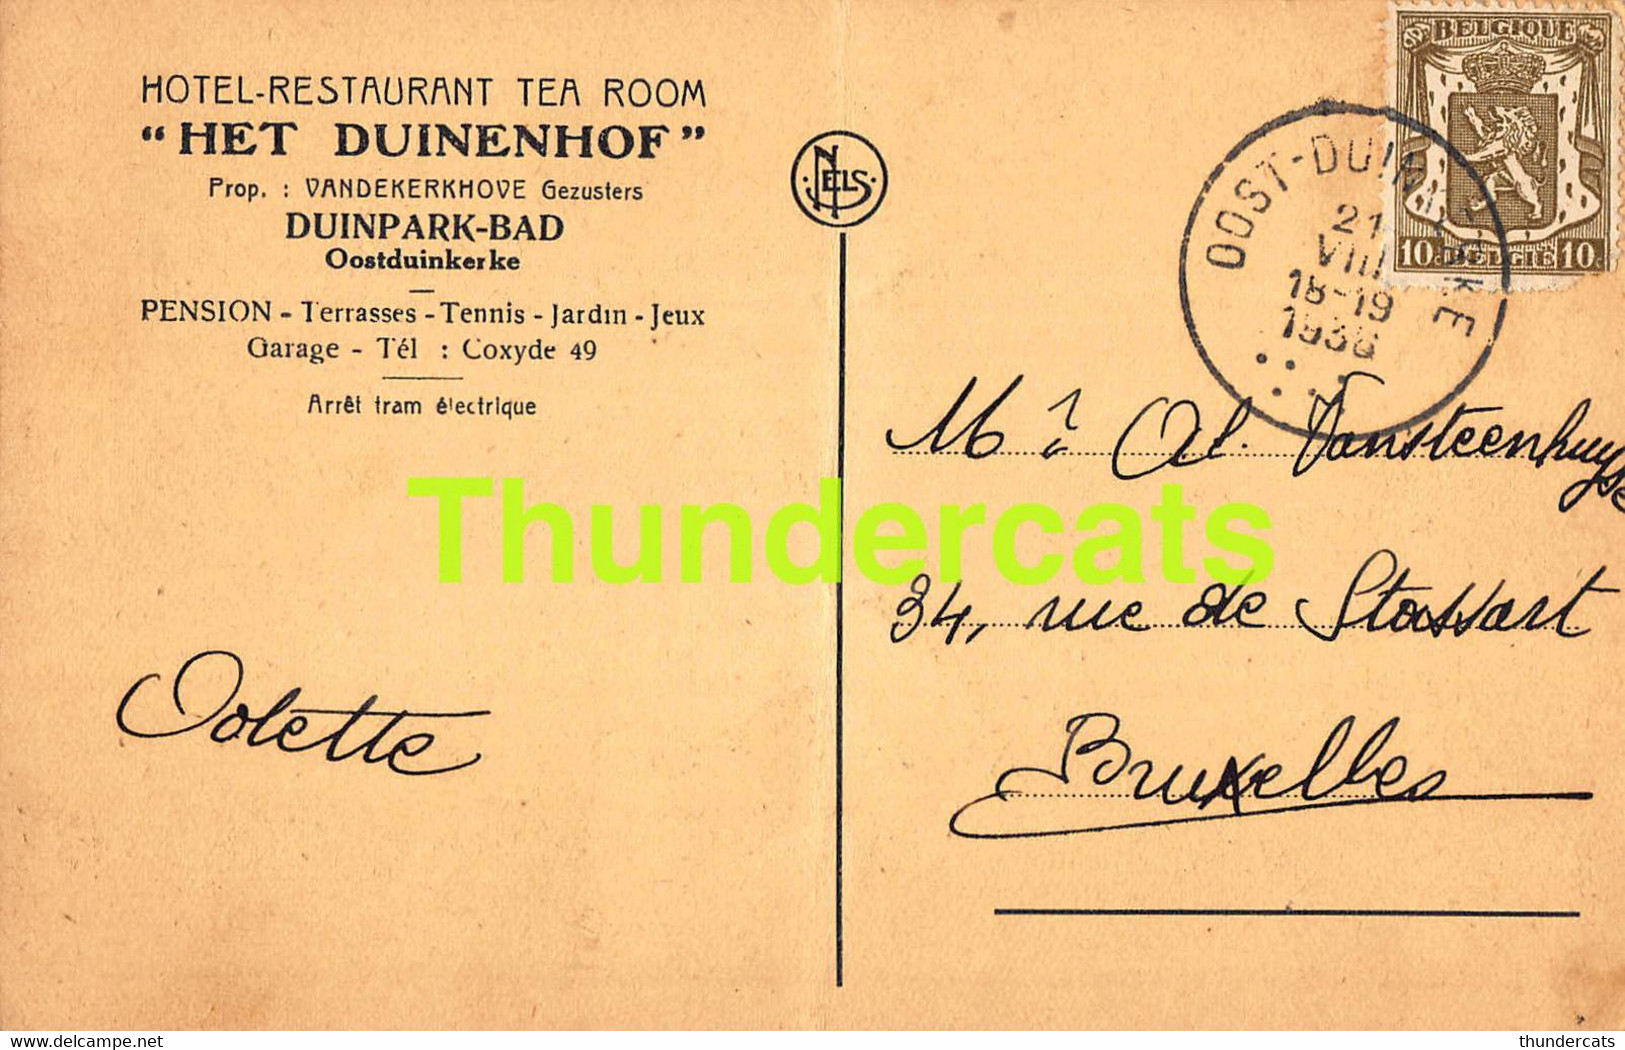 HOTEL-RESTAURANT TEA ROOM
“HET DUINENHOF”
Prop. : VANDEKERKHOVE Gezusters
DUINPARK-BAD
Oostduinkerke
PENSION - Terrasses - Tennis - Jardin - Jeux
Garage - Tél : Coxyde 49
Arrêt tram électrique
NELS
BELGIQUE
10 BELGIE 10
OOST-DUINKERKE
21
VIII
18-19
1936
Mr Al. Vansteenhuyse
34, rue de Stassart
Bruxelles
Odette
Thundercats
www.delcampe.net
thundercats